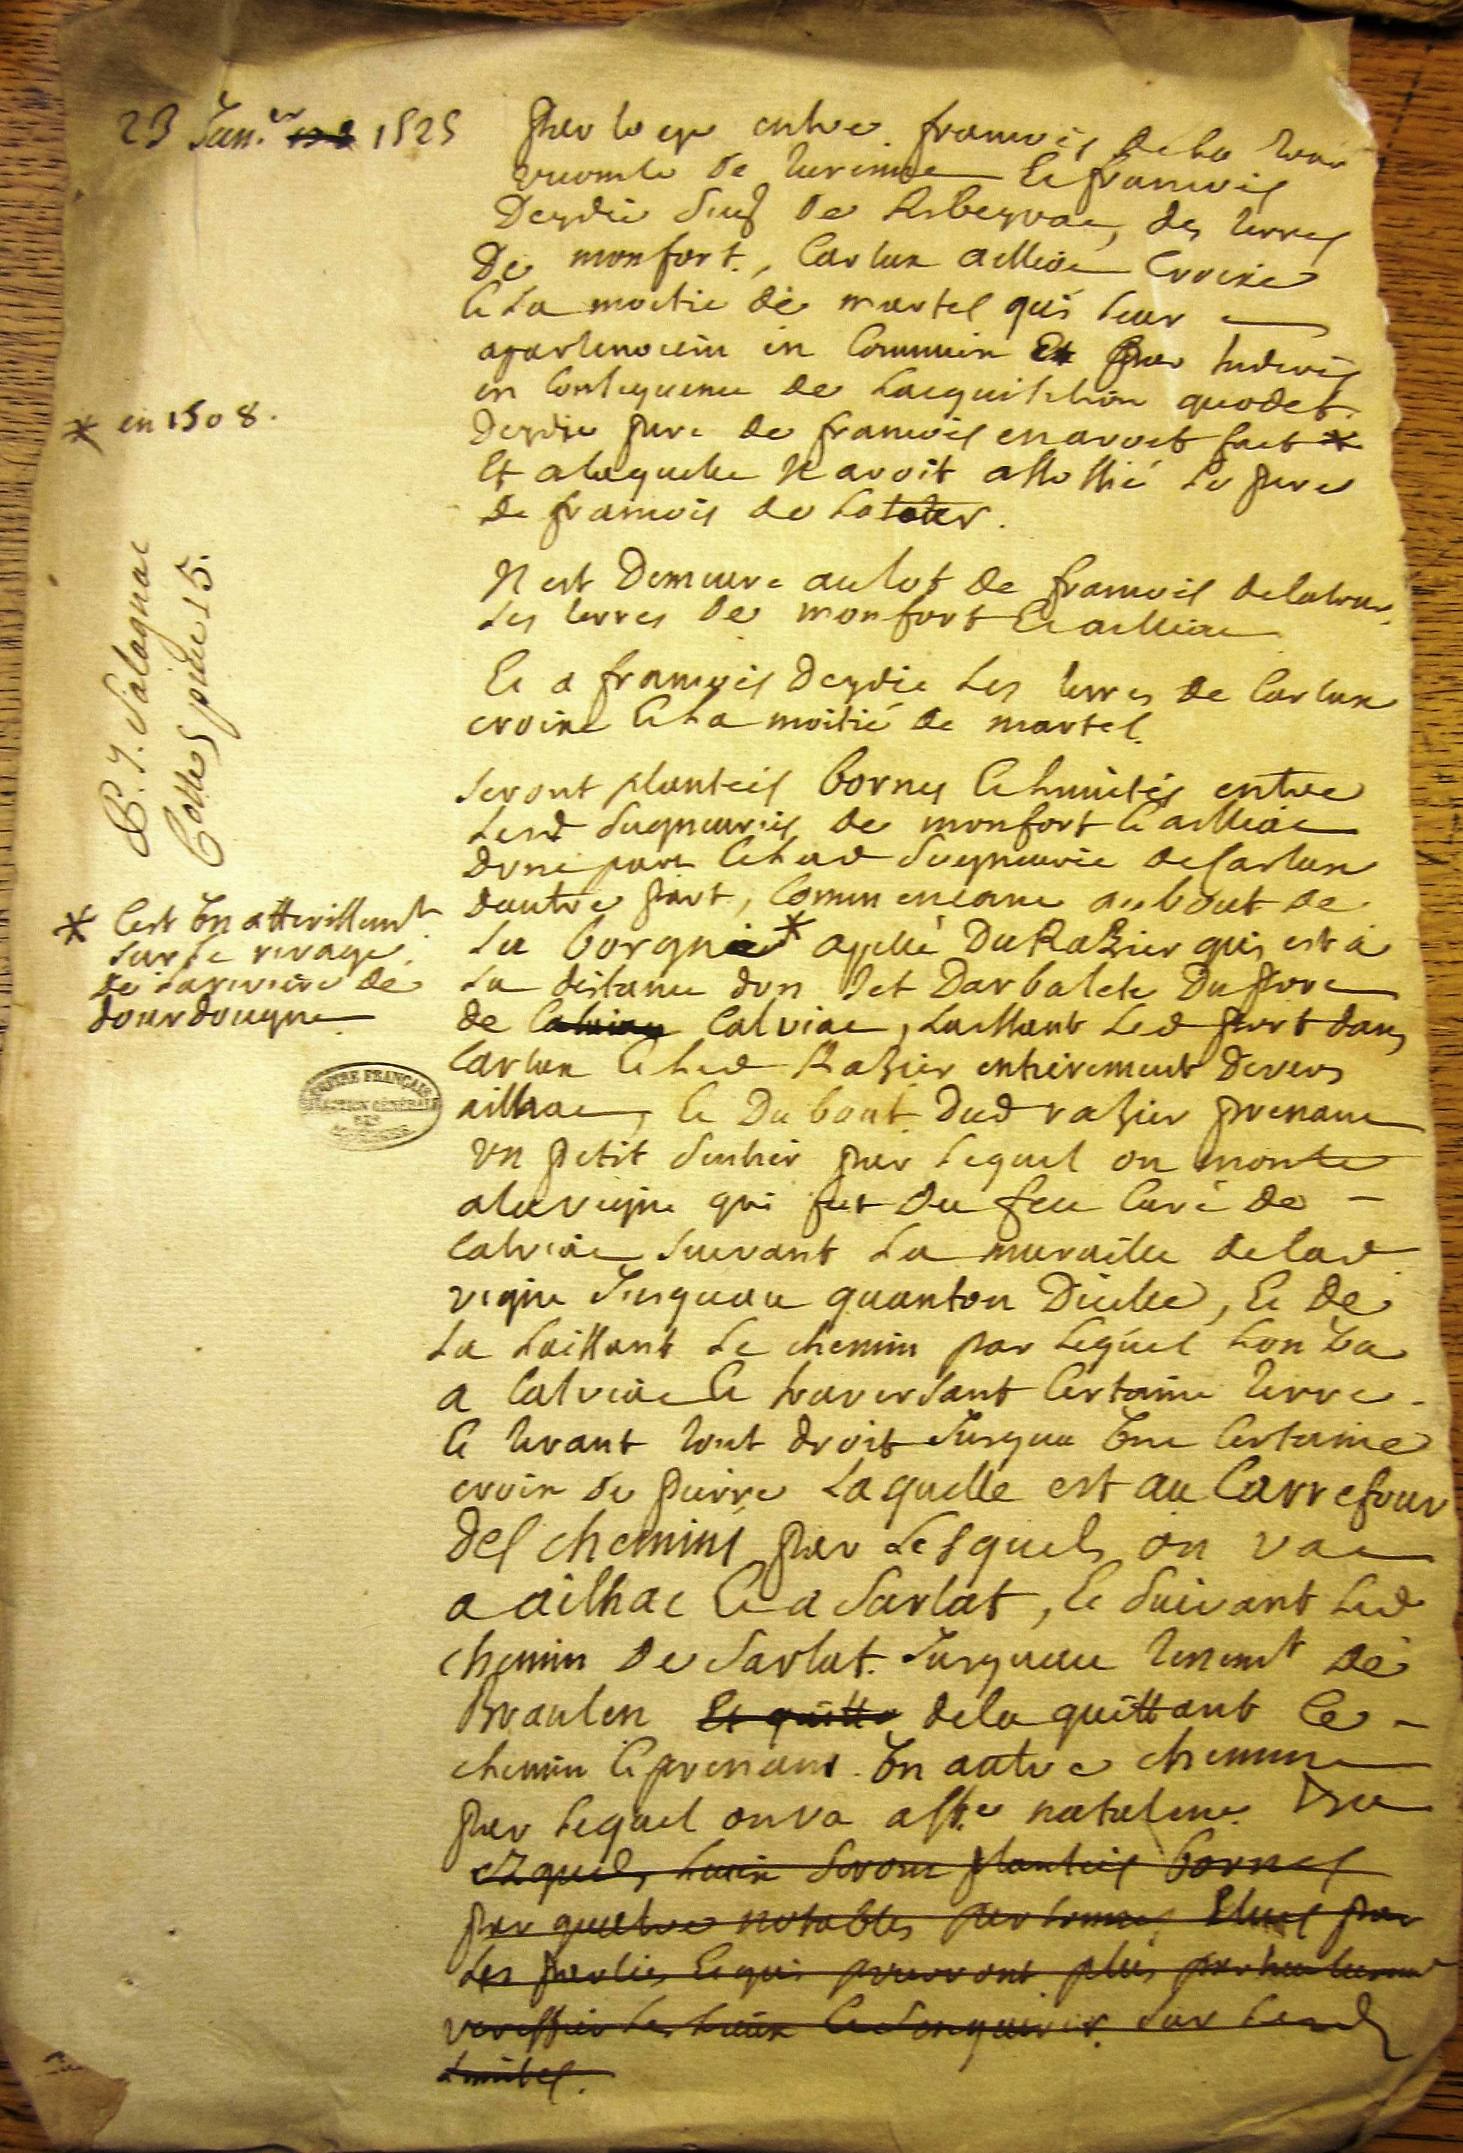 23 Janer 1525
Partage entre francois de la tour
vicomte de turenne Et francois
Deydie Sieur de Riberyrac, des terres
De monfort, Carlux aillac Croixe
Et la moitie de martel qui leur
apartenoient en Commun Et par Indivis
en Consequence de Lacquisition quodet
Deydie pere de francois en avoit fait *
* en 1508.
Et a laquelle Il avoit assossié Le pere
de francois de la tour.
Il est Demeuré au lot de francois de la tour
Les terres de monfort Et aillac
Et a francois Deydie Les terres de Carlux
croixe Et La moitié de martel.
P. J. Salagnac
Cottes piece 15.
Seront planteis bornes Et limites entre
Lesd Seigneuries de monfort Et aillac
dune part Et Lad Seigneurie de Carlux
dautre part, Commencant au bout de
La borgne * apellé Du Razier qui est a
* Cest Un atterissement
sur le rivage
de la riviere de
dourdougne
La distance dun Jet Darbalete Du port
de Calviac Calviac, Laissant Led port dans
Carlux Et Led Razier entierement Devers
aillac, Et Du bout Dud razier prenant
un petit Sentier par Lequel on monte
a la vigne qui fut Du feu Curé de
Calviac Suivant La muraille de lad
vigne Jusquau quanton Dicelle, Et de
La Laissant Le chemin par Lequel Lon Va
a Calviac Et traversant Certaine terre
Et tirant tout droit Jusqua Une Certaine
croix de pierre Laquelle est au Carrefour
des chemins par Lesquels on va
a ailhac Et a Sarlat, Et Suivant Led
chemin de Sarlat Jusquau tenemt de
Braulen Et quitte de la quittant Ce
chemin Et prenant Un autre chemin
par Lequel on va a Ste natalene
Ezquels Lieux Seront plantéis bornes
par quatre notables personnes Elues par
Les parties Et qui pourront plus particulierement
veriffier Les Lieux Et Senquerir Sur Lesd
Limites.